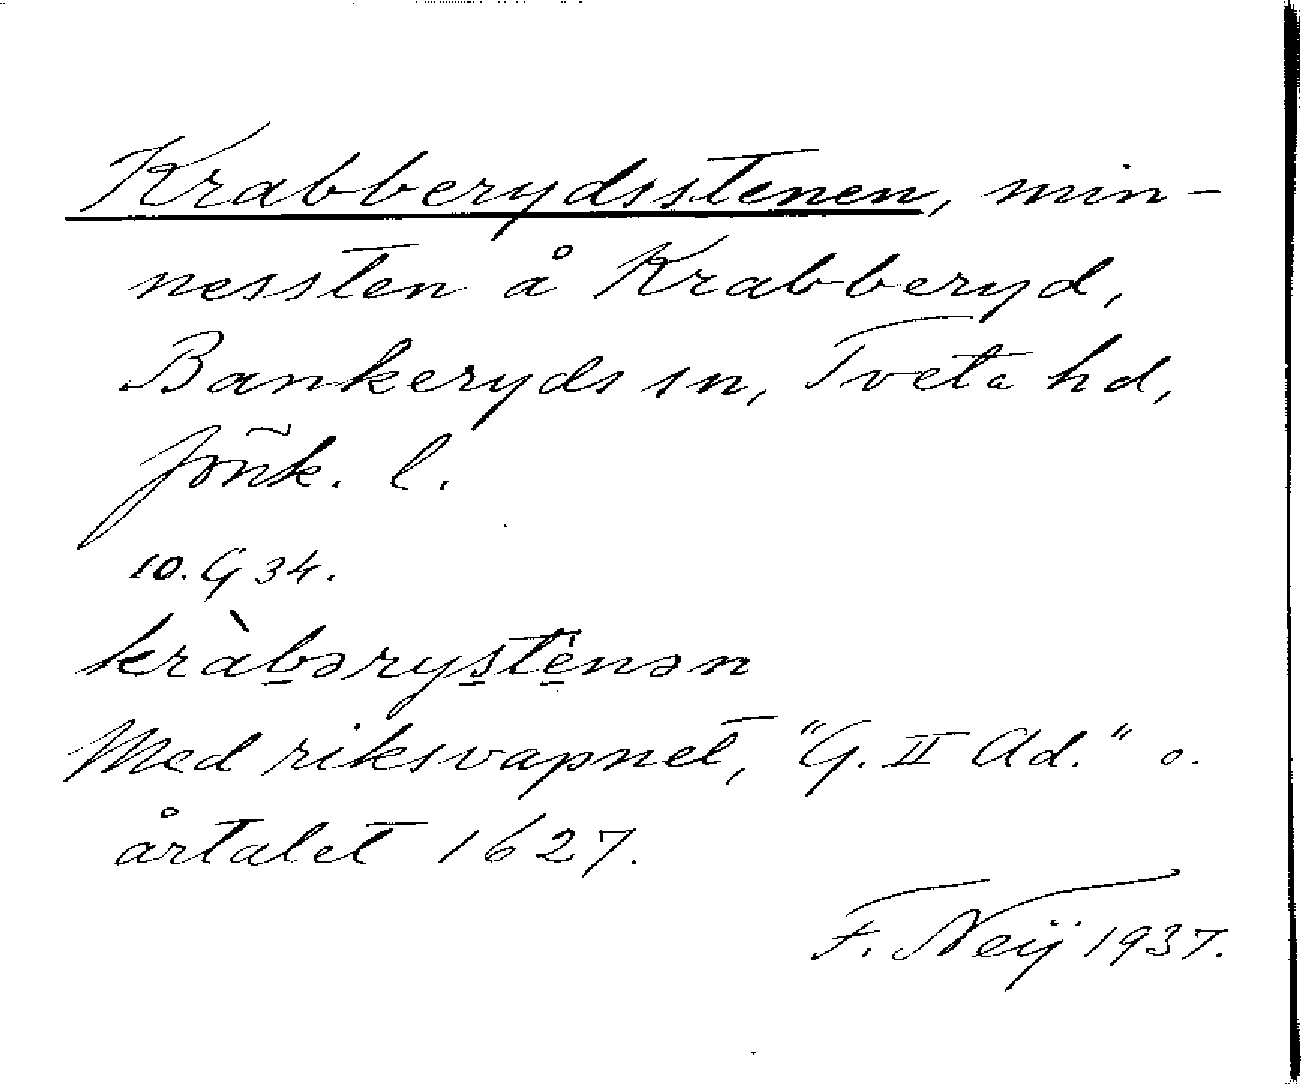 Krabberydsstenen, min-
nessten å Krabberyd,
Bankeryds sn, Tveta hd,
Jönk. l.
10. G 34.
kràb̲ərys̲tė̲nən
Med riksvapnet, "G. II Ad." o.
årtalet 1627.
F. Neij 1937.